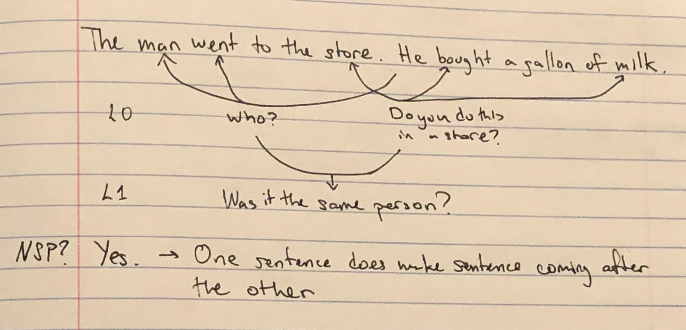 The man went to the store. He bought a gallon of milk.
L0 Who? Do you do this
in a store?
L1 Was it the same person?
NSP? Yes. → One sentence does make sentence coming after
the other